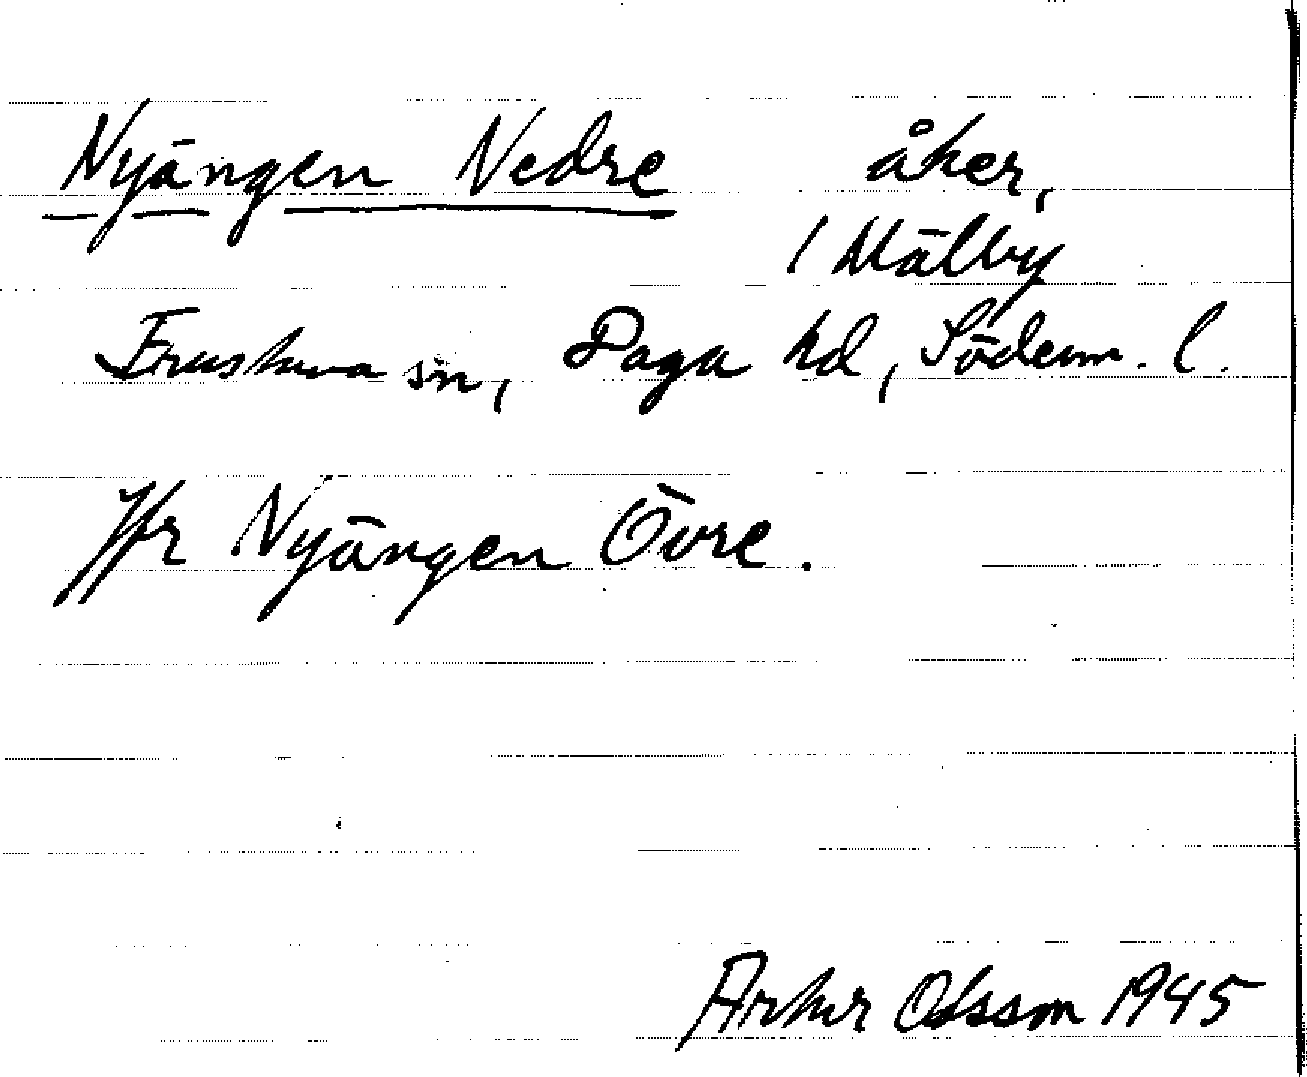 Nyängen Nedre åker,
/ Mälby
Frustuna sn, Daga hd, Söderm. l.
Jfr Nyängen Övre.
Arthur Olsson 1945